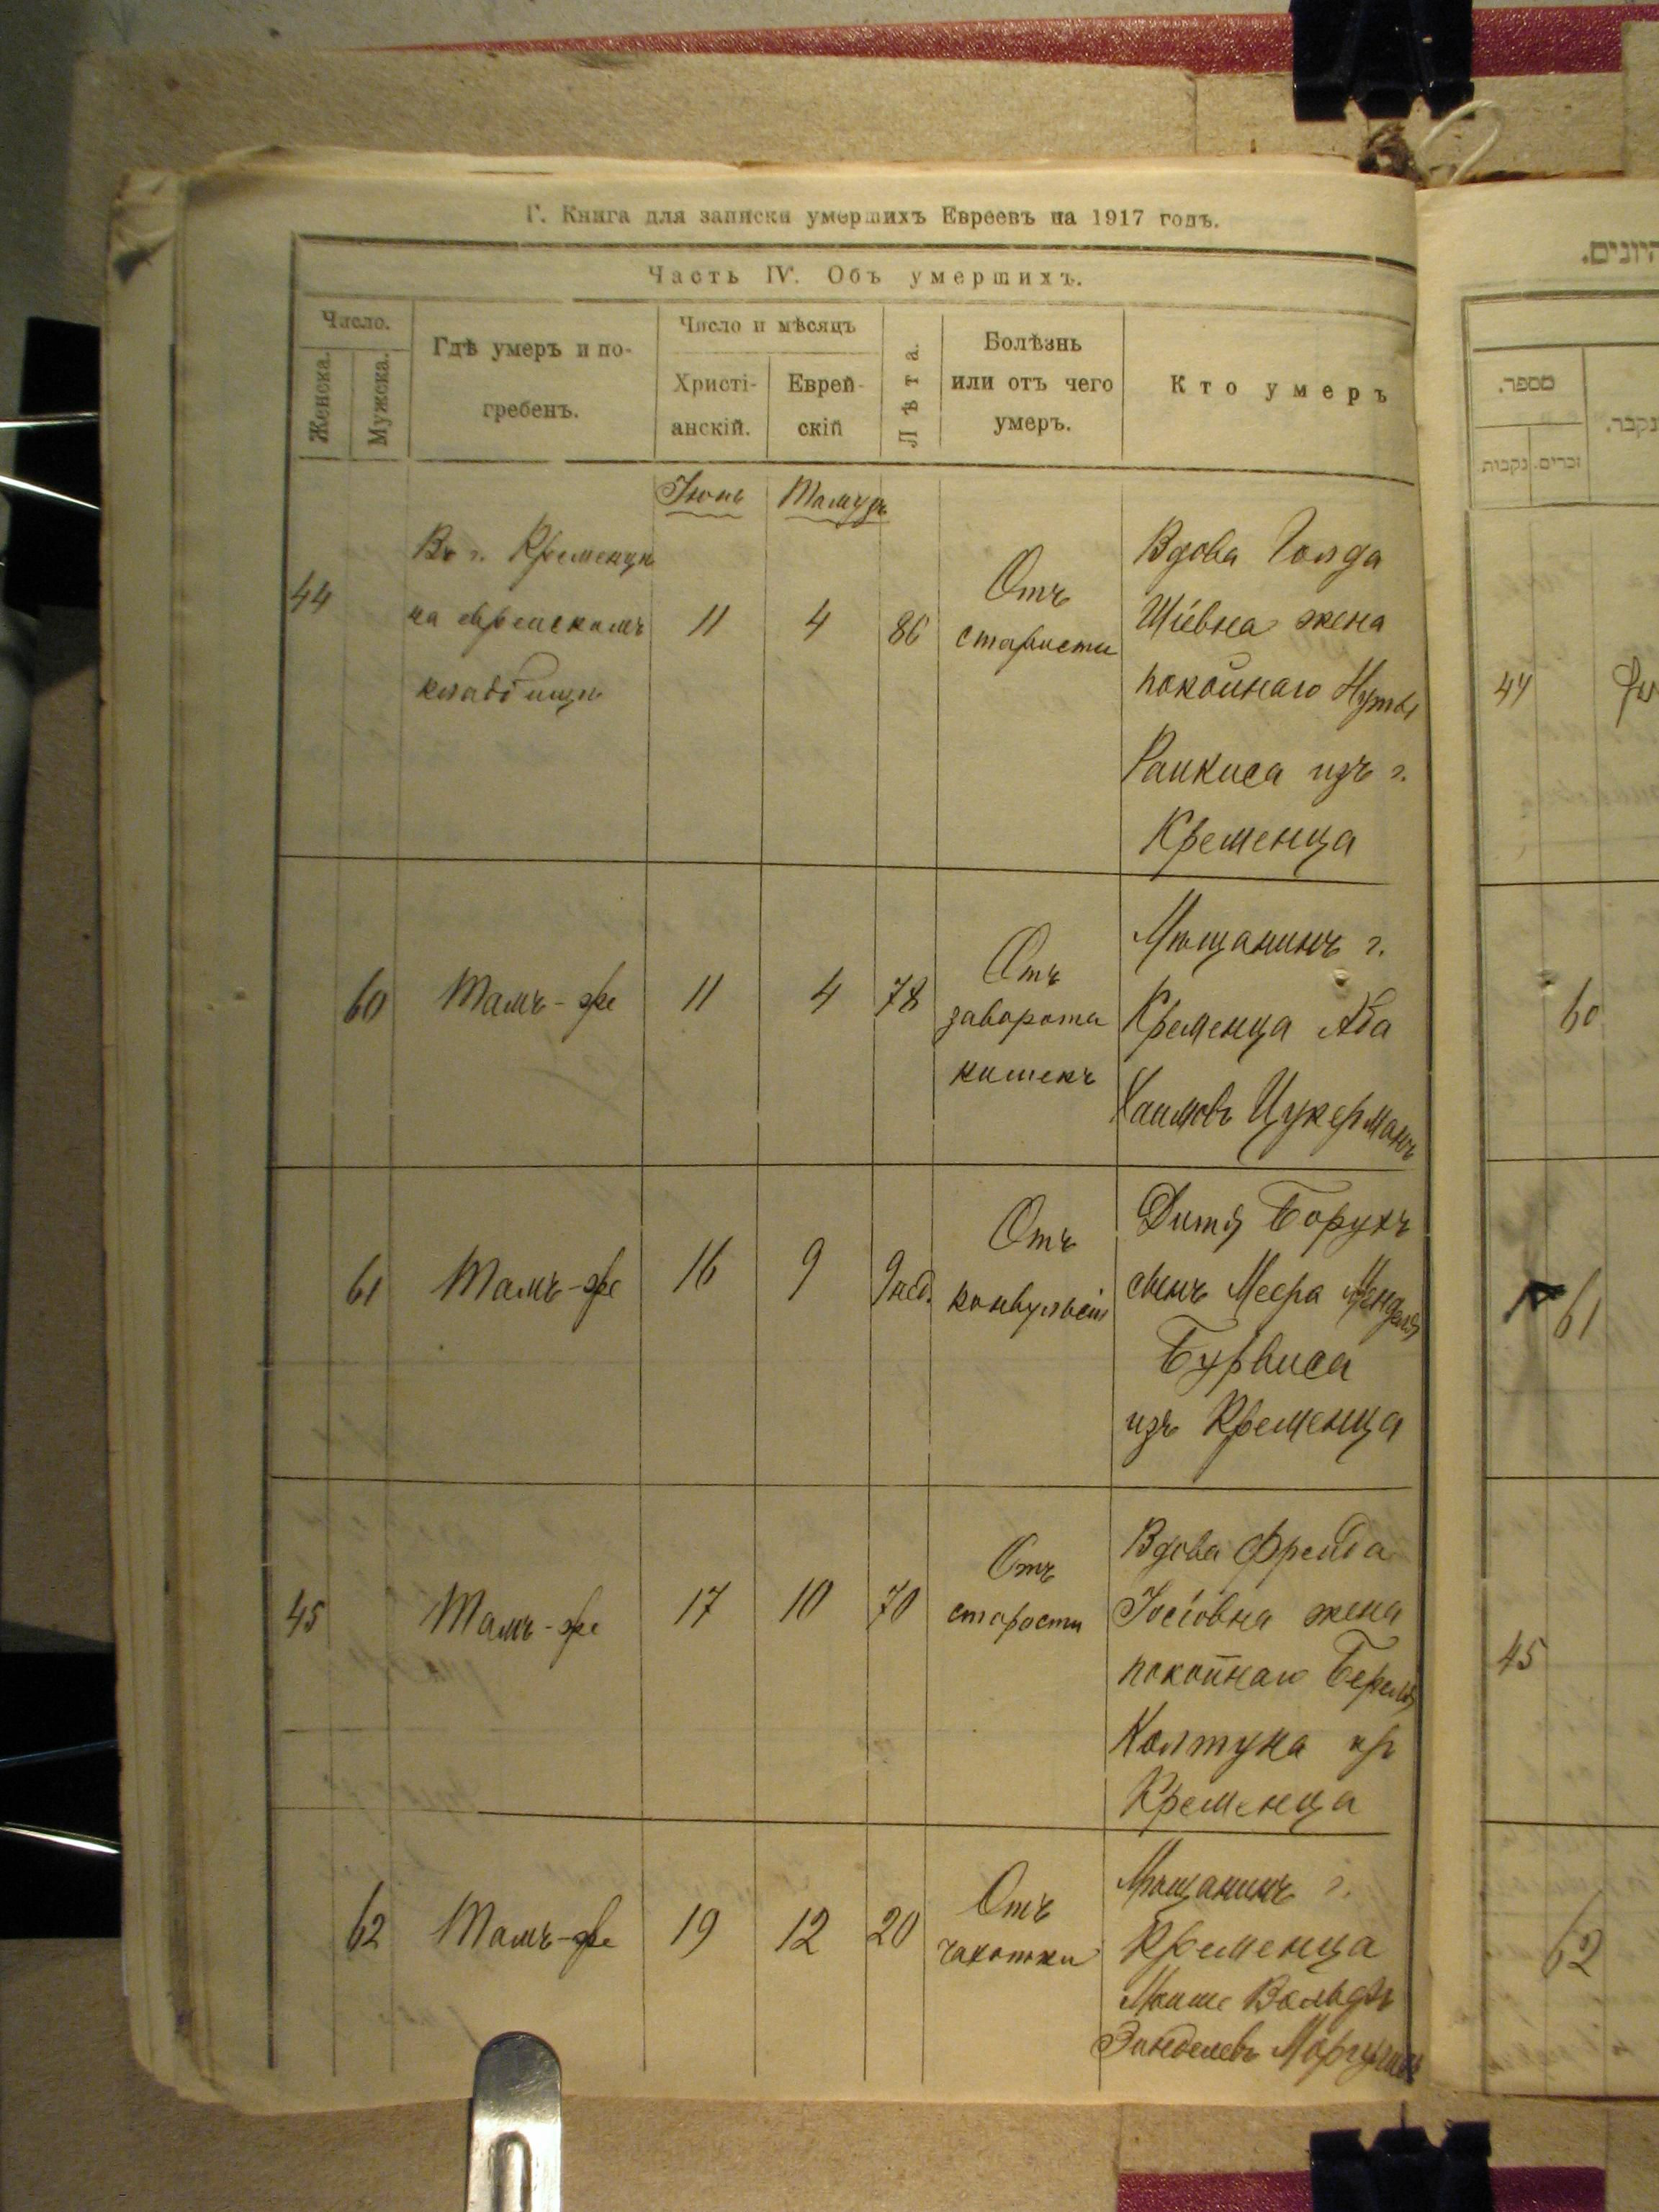 Г. Книга для записки умершихъ Евреевъ на 1917 годъ.
Часть IV. Объ умершихъ.
Число.
Женска.
Мужска.
Гдѣ умеръ и по-
гребенъ.
Число и мѣсяцъ
Христі-
анскій.
Еврей-
скій
Лѣта.
Болѣзнь
или отъ чего
умеръ.
Кто умеръ
Іюнь
Тамузъ
44
Въ г. Кременцѣ
на еврейскомъ
кладбищѣ
11
4
86
Отъ
старости
Вдова Голда
Шіевна жена
покойнаго Нуты
Ранкиса изъ г.
Кременца
60
Тамъ-же
11
4
78
Отъ
заворота
кишекъ
Мѣщанинъ г.
Кременца Аба
Хаимовъ Цукерманъ
61
Тамъ-же
16
9
9 нед.
Отъ
конвульсіи
Дитя Борухъ
сынъ Меера Менделя
Бурвиса
изъ Кременца
45
Тамъ-же
17
10
70
Отъ
старости
Вдова Фрейда
Іосіовна жена
покойнаго Береля
Колтуна
Кременца
62
Тамъ-же
19
12
20
Отъ
чахотки
Мѣщанинъ г.
Кременца
Мойше Вольфъ
Зинделевъ
מספר.
זכרים.
נקבות.
44
60
61
45
62